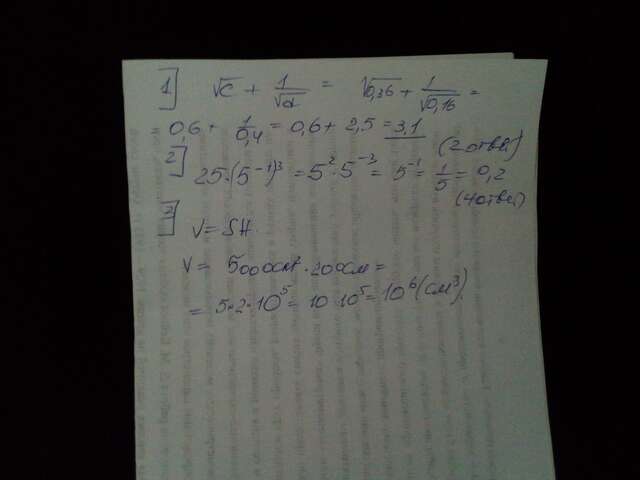 1] √c + 1/√d = √0,36 + 1/√0,16 =
= 0,6 + 1/0,4 = 0,6 + 2,5 = 3,1
(2 отв.)
2] 25·(5⁻¹)³ = 5²·5⁻³ = 5⁻¹ = 1/5 = 0,2
(4 отв.)
3] V = SH
V = 5000см²·200см =
= 5·2·10⁵ = 10·10⁵ = 10⁶(см³).